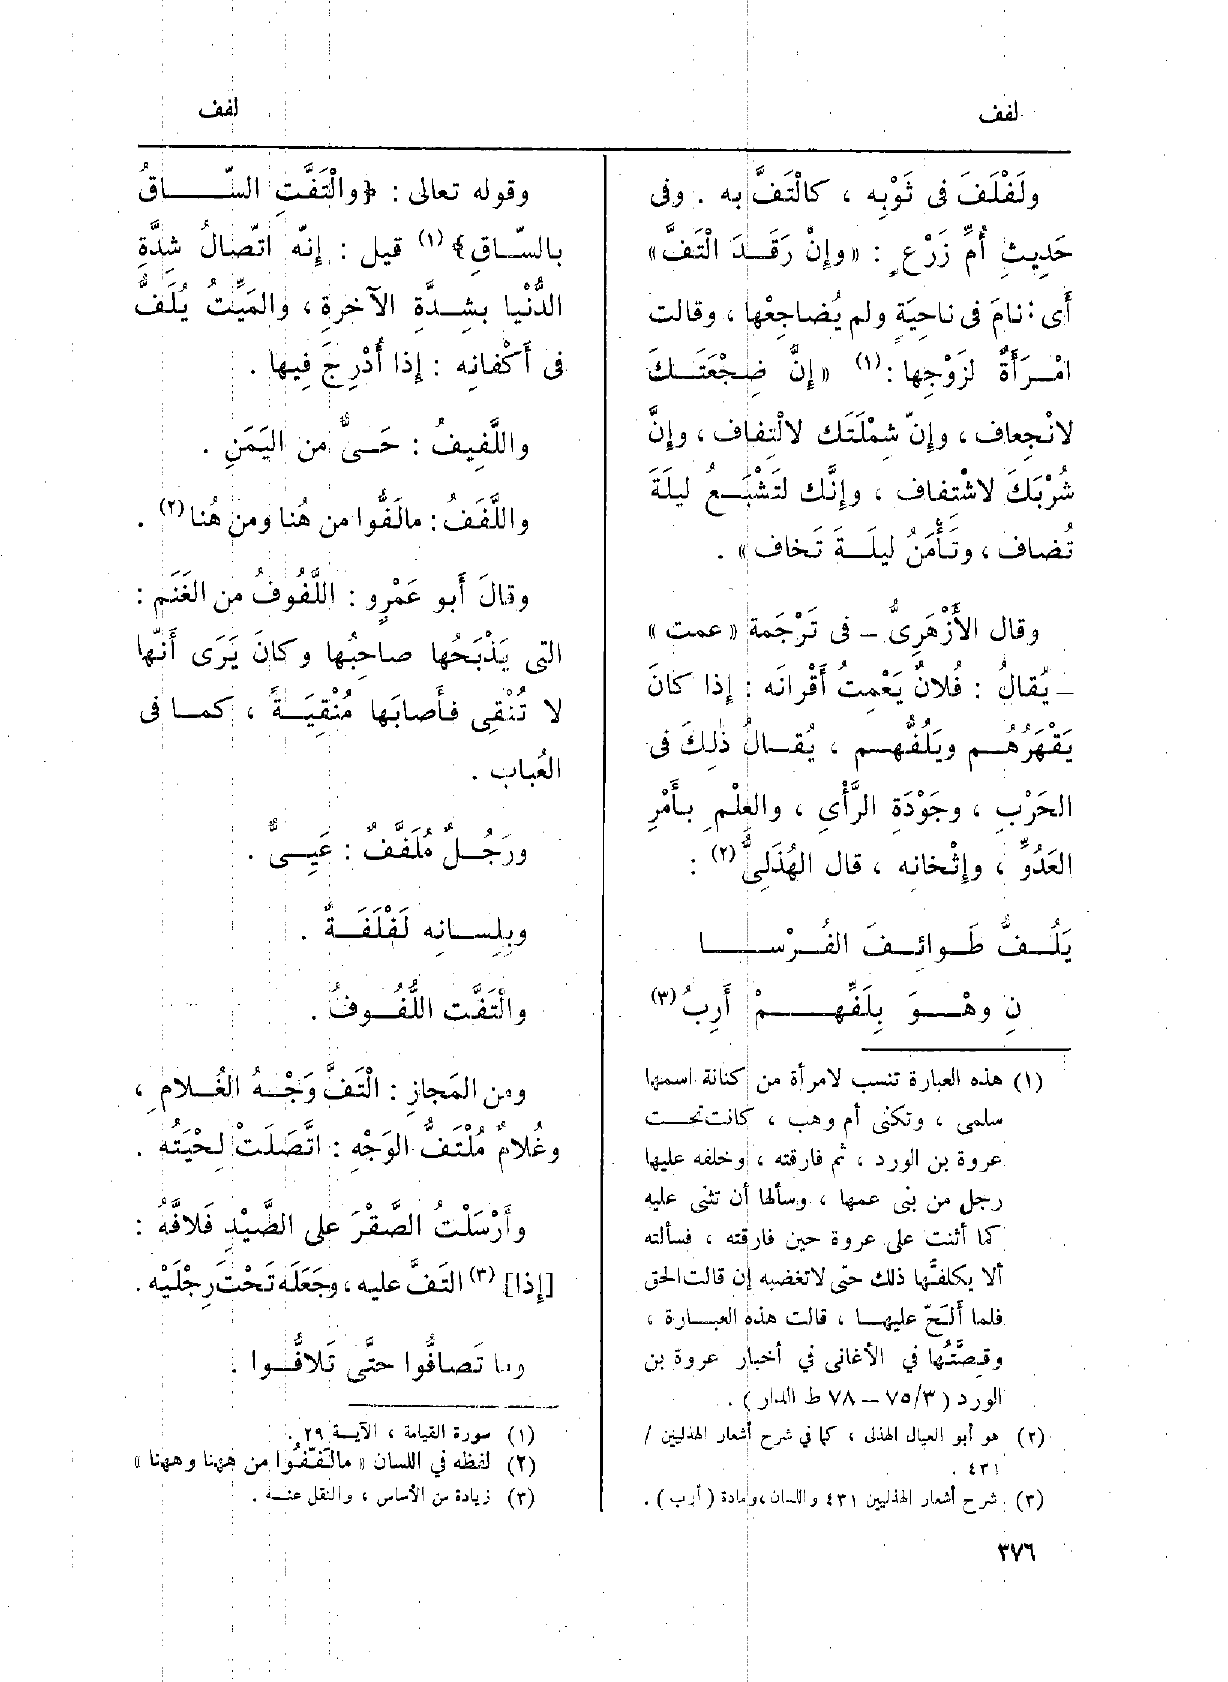 لفف
لفف
ولَفْلَفَ فى ثَوْبِه ، كالْتَفَّ به . وفى
حَدِيثِ أُمِّ زَرْعٍ : « وإِنْ رَقَدَ الْتَفَّ »
أَى : نامَ فى ناحِيَةٍ ولم يُضاجِعْها ، وقالت
امْرَأَةٌ لزَوْجِها :(١) « إِنَّ ضِجْعَتَكَ
لانْجِعاف ، وإِنّ شَمْلَتَك لالْتِفاف ، وإِنَّ
شُرْبَكَ لاشْتِفاف ، وإِنَّك لتَشْبَعُ ليلَةَ
تُضاف ، وتَأْمَنُ ليلَةَ تَخاف » .
وقال الأَزْهَرِىُّ – فى تَرْجَمة « عمت »
– يُقالُ : فُلانٌ يَعْمِتُ أَقْرانَه : إِذا كانَ
يَقْهَرُهُم ويَلُفُّهم ، يُقالُ ذٰلِكَ فى
الحَرْبِ ، وجَوْدَةِ الرَّأْىِ ، والعِلْمِ بأَمْرِ
العَدُوِّ ، وإِثْخانِه ، قال الهُذَلِىُّ(٢) :
يَلُفُّ طَوائِفَ الفُرْسا
نِ وهْوَ بِلَفِّهِمْ أَرِبُ(٣)
(١) هذه العبارة تنسب لامرأة من كنانة اسمها
سلمى ، وتكنى أم وهب ، كانت تحت
عروة بن الورد ، ثم فارقته ، وخلفه عليها
رجل من بنى عمها ، وسألها أن تثنى عليه
كما أثنت على عروة حين فارقته ، فسألته
ألا يكلفَّها ذلك حتى لا تغضبه إن قالت الحق
فلما ألَحّ عليها ، قالت هذه العبارة ،
وقصَّتُها في الأغانى في أخبار عروة بن
الورد ( ٣/ ٧٥ – ٧٨ ط الدار ) .
(٢) هو أبو العيال الهذلى ، كما في شرح أشعار الهذليين /
٤٣١ .
(٣) شرح أشعار الهذليين ٤٣١ واللسان ، ومادة ( أرب ) .
٣٧٦
وقوله تعالى : ﴿ والْتَفَّتِ السّاقُ
بالسّاقِ ﴾(١) قيل : إِنّه اتّصالُ شِدَّةِ
الدُّنْيا بشِدَّةِ الآخرةِ ، والمَيِّتُ يُلَفُّ
فى أَكْفانِه : إِذا أُدْرِجَ فِيها .
واللَّفِيفُ : حَىٌّ من اليَمَنِ .
واللَّفَفُ : مالَفُّوا من هُنا ومن هُنا(٢) .
وقالَ أَبو عَمْرٍو : اللَّفُوفُ من الغَنَمِ :
التى يَذْبَحُها صاحِبُها وكانَ يَرَى أَنّها
لا تُنْقِى فأَصابَها مُنْقِيَةً ، كما فى
العُباب .
ورَجُلٌ مُلَفَّفٌ : عَيِىٌّ .
وبلِسانِه لَفْلَفَةٌ .
والْتَفَّت اللُّفُوفُ .
ومن المَجازِ : الْتَفَّ وَجْهُ الغُلامِ ،
وغُلامٌ مُلْتَفُّ الوَجْهِ : اتَّصَلَتْ لِحْيَتُه .
وأَرْسَلْتُ الصَّقْرَ على الصَّيْدِ فَلافَّهُ :
[إذا](٣) التَفَّ عليه ، وجَعَلَه تَحْتَ رِجْلَيْه .
وما تَصافُّوا حتَّى تَلافُّوا .
(١) سورة القيامة ، الآية ٢٩ .
(٢) لفظه في اللسان « مالَفَّفُوا من ههنا وههنا »
(٣) زيادة من الأساس ، والنقل عنه .